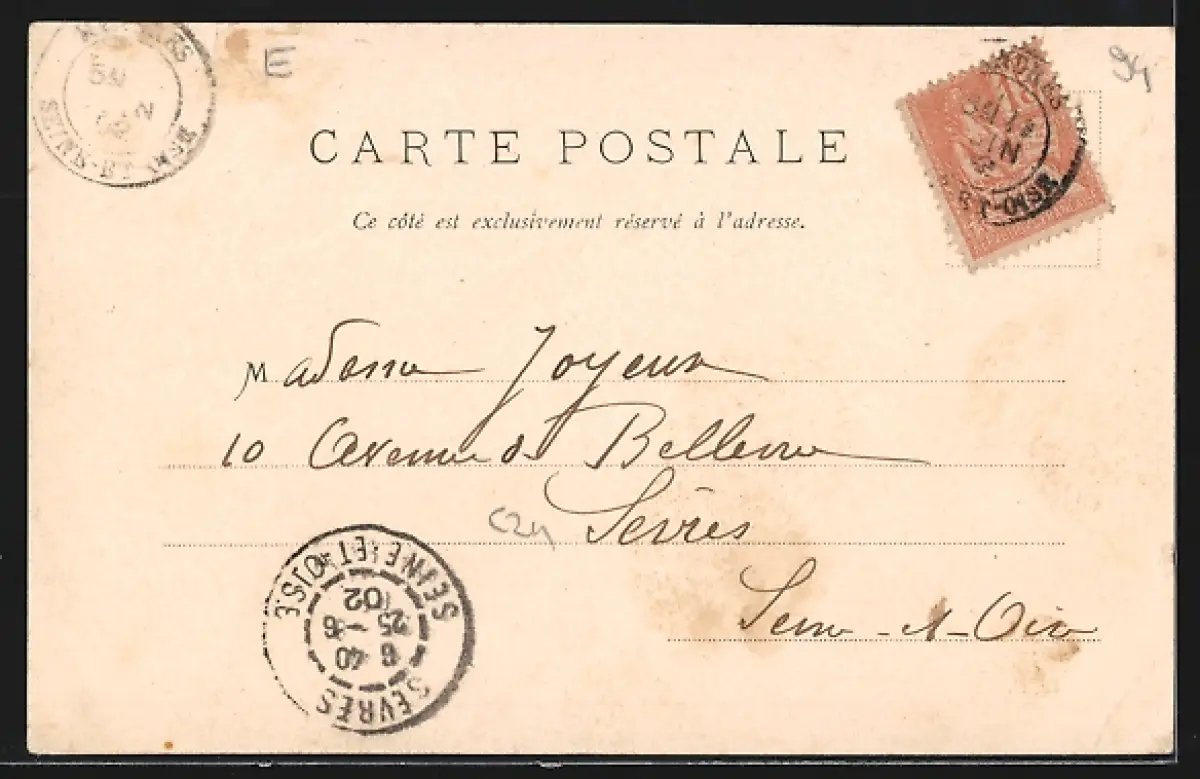 E
94
CARTE POSTALE
Ce côté est exclusivement réservé à l'adresse.
Madame Joyeux
10 Avenue de Bellevue
Sèvres
C24
Seine-et-Oise
SEINE-ET-OISE
ET-OISE
SÈVRES
6 40
25 -6
02
SEINE-ET-OISE